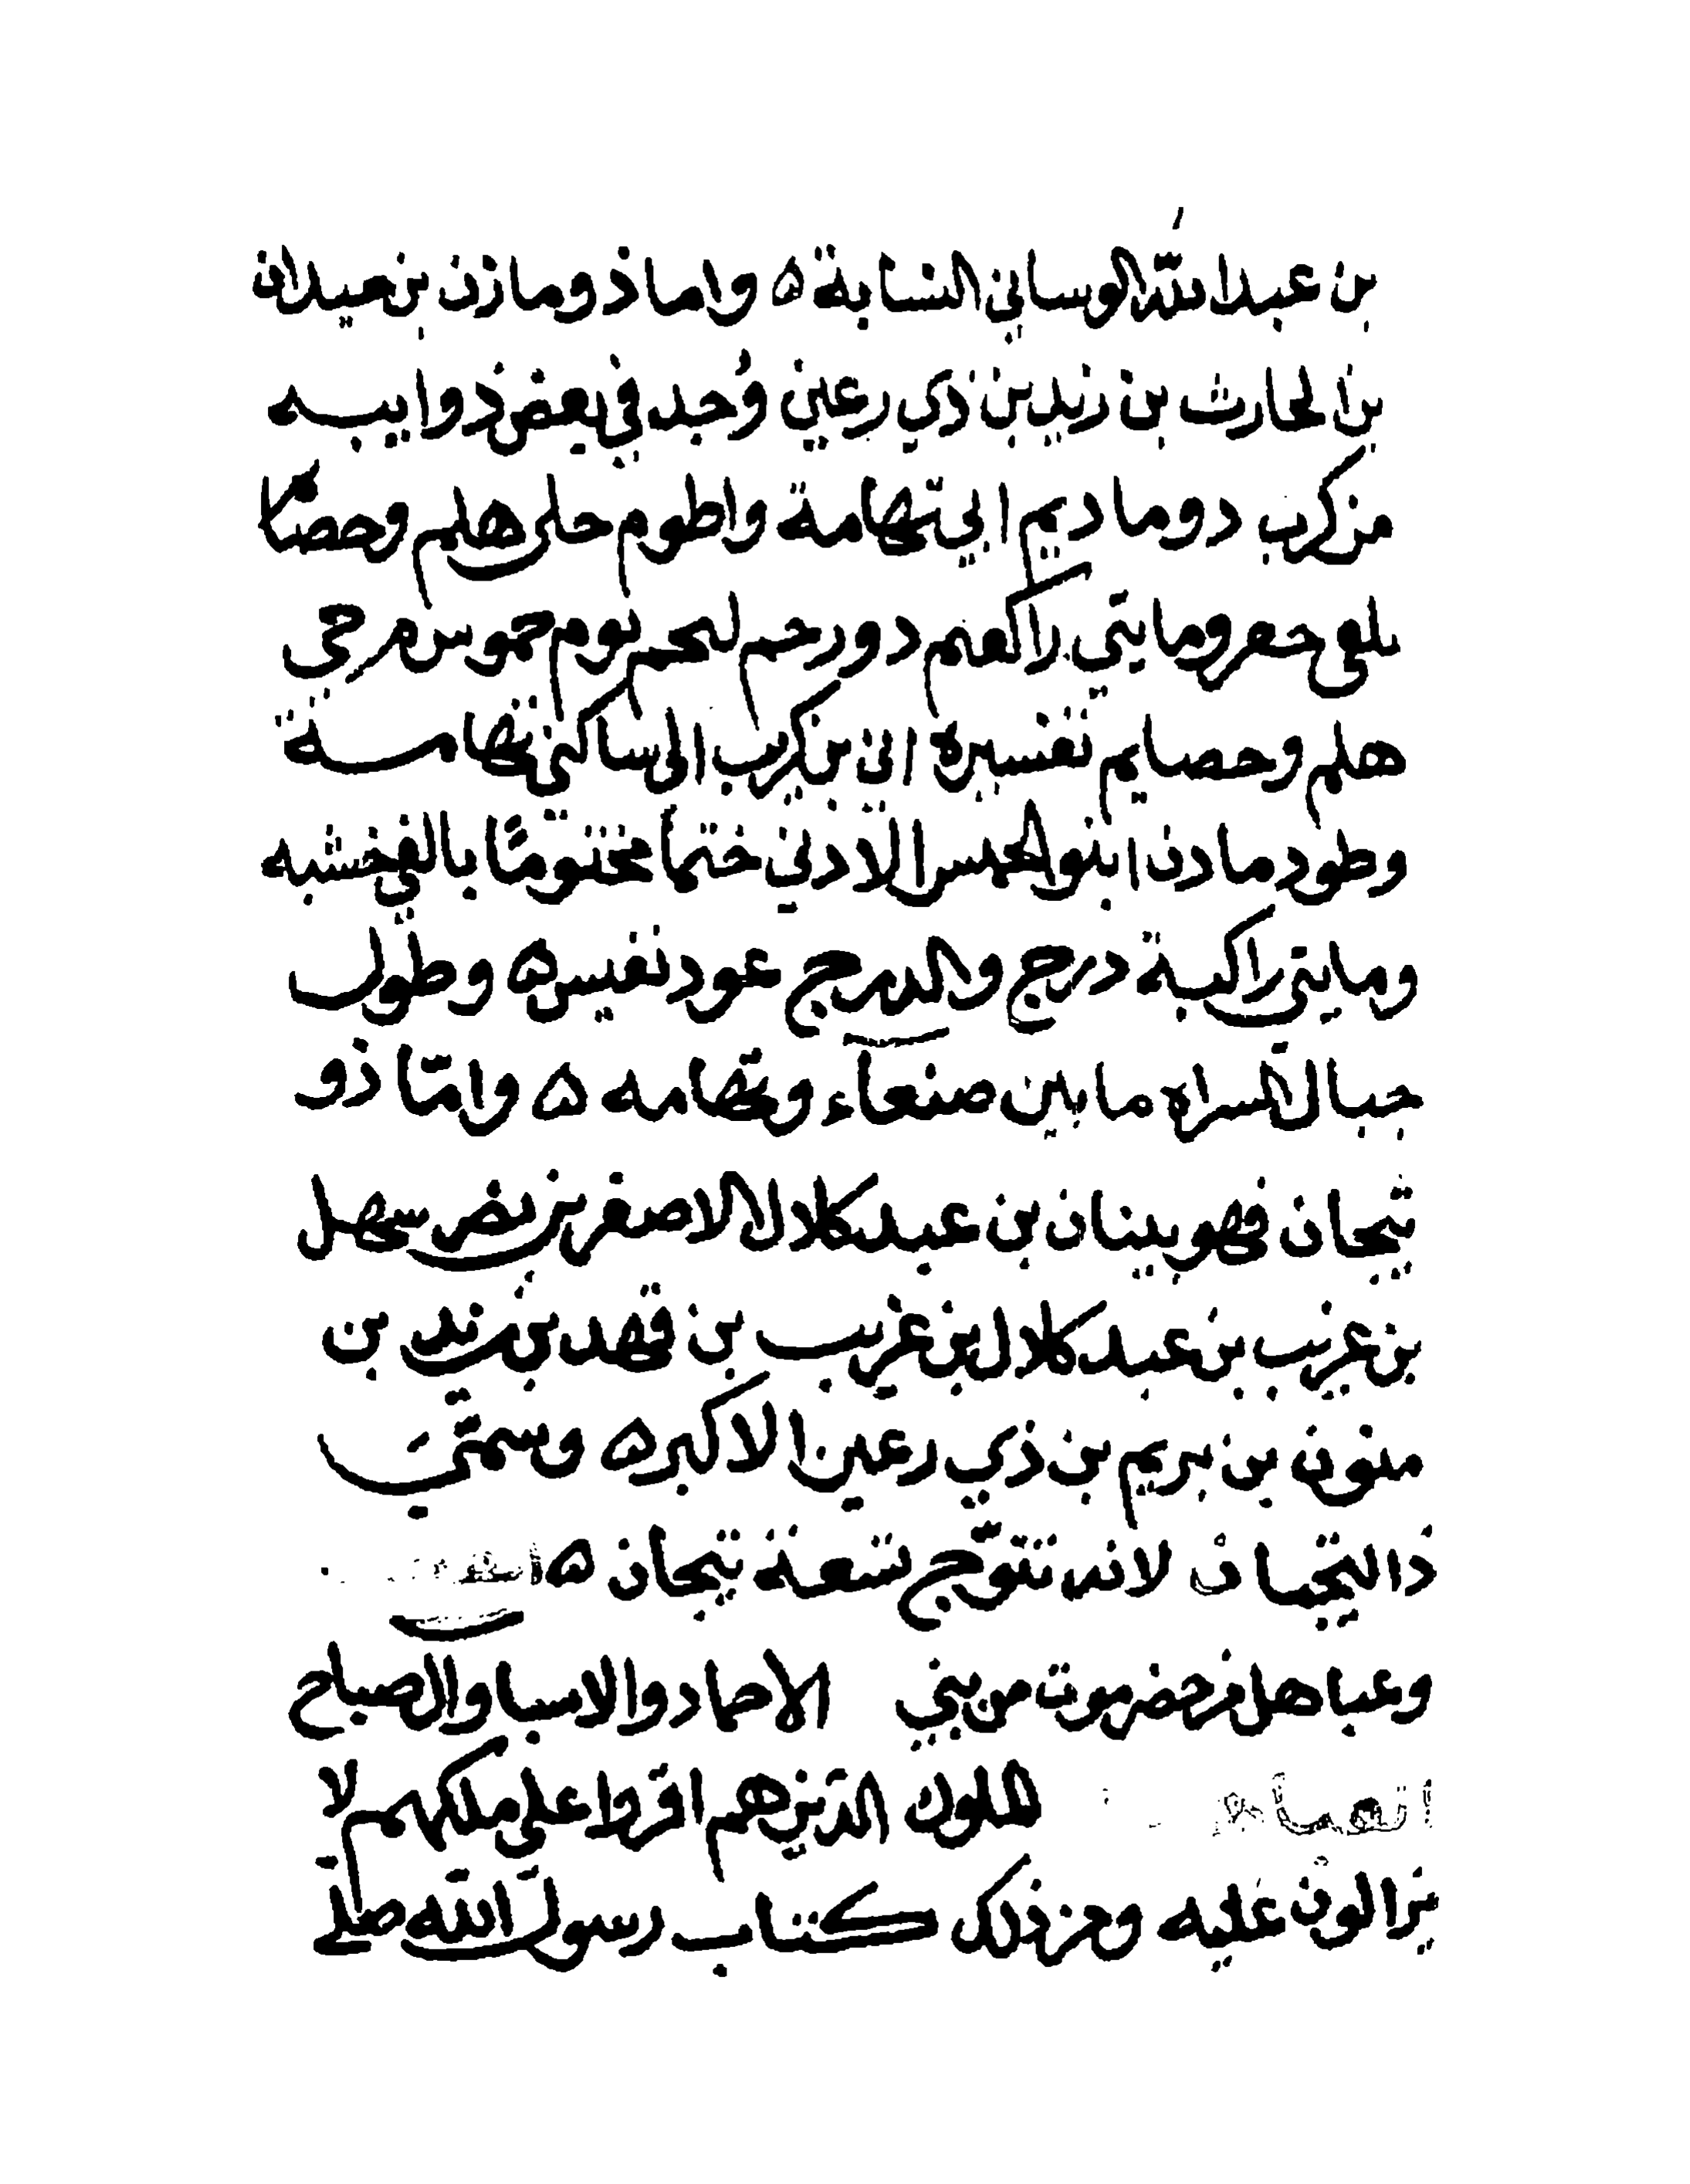 بن عبد الله الوساني النسابة ۵ واما ذو مازن بن حيدان
بن الحارث بن زيد بن ذي رعين وُجد في بعض ذواييبه
مزكرب دو ماديم ابي تهامة واطوم حلى هلم وحصا
بلعي حعر ومايتي راكعم دورحم لمحم يوم حموس مرحى
هلم وحصايم تفسيره اني بن كرب الى ساكني تهامسة
وطود مادن ابنو الادني ختما مختومًا بالفي خشبه
ومايتي راكبة درج والدرج عود نفيس ۵ وطول
جبال السراه ما بين صنعآء وتهامه ۵ وامّا ذو
ثيجان فهو ينان بن عبد كلال الاصغر بن نض سهل
بن عريب بن عبد كلال بن عريب بن فهد بن زيد بن
منون بن يريم بن ذي رعين الاكبر ۵ وسمّي
ذا التيجان لانه تتوّج تسعة تيجان ۵
وعباهل من حضرموت من بني الاحماد والاسبا والصباح
الملوك الذين هم اقروا على ملكهم لا
يزالون عليه ومن ذلك كتاب رسول الله صلى